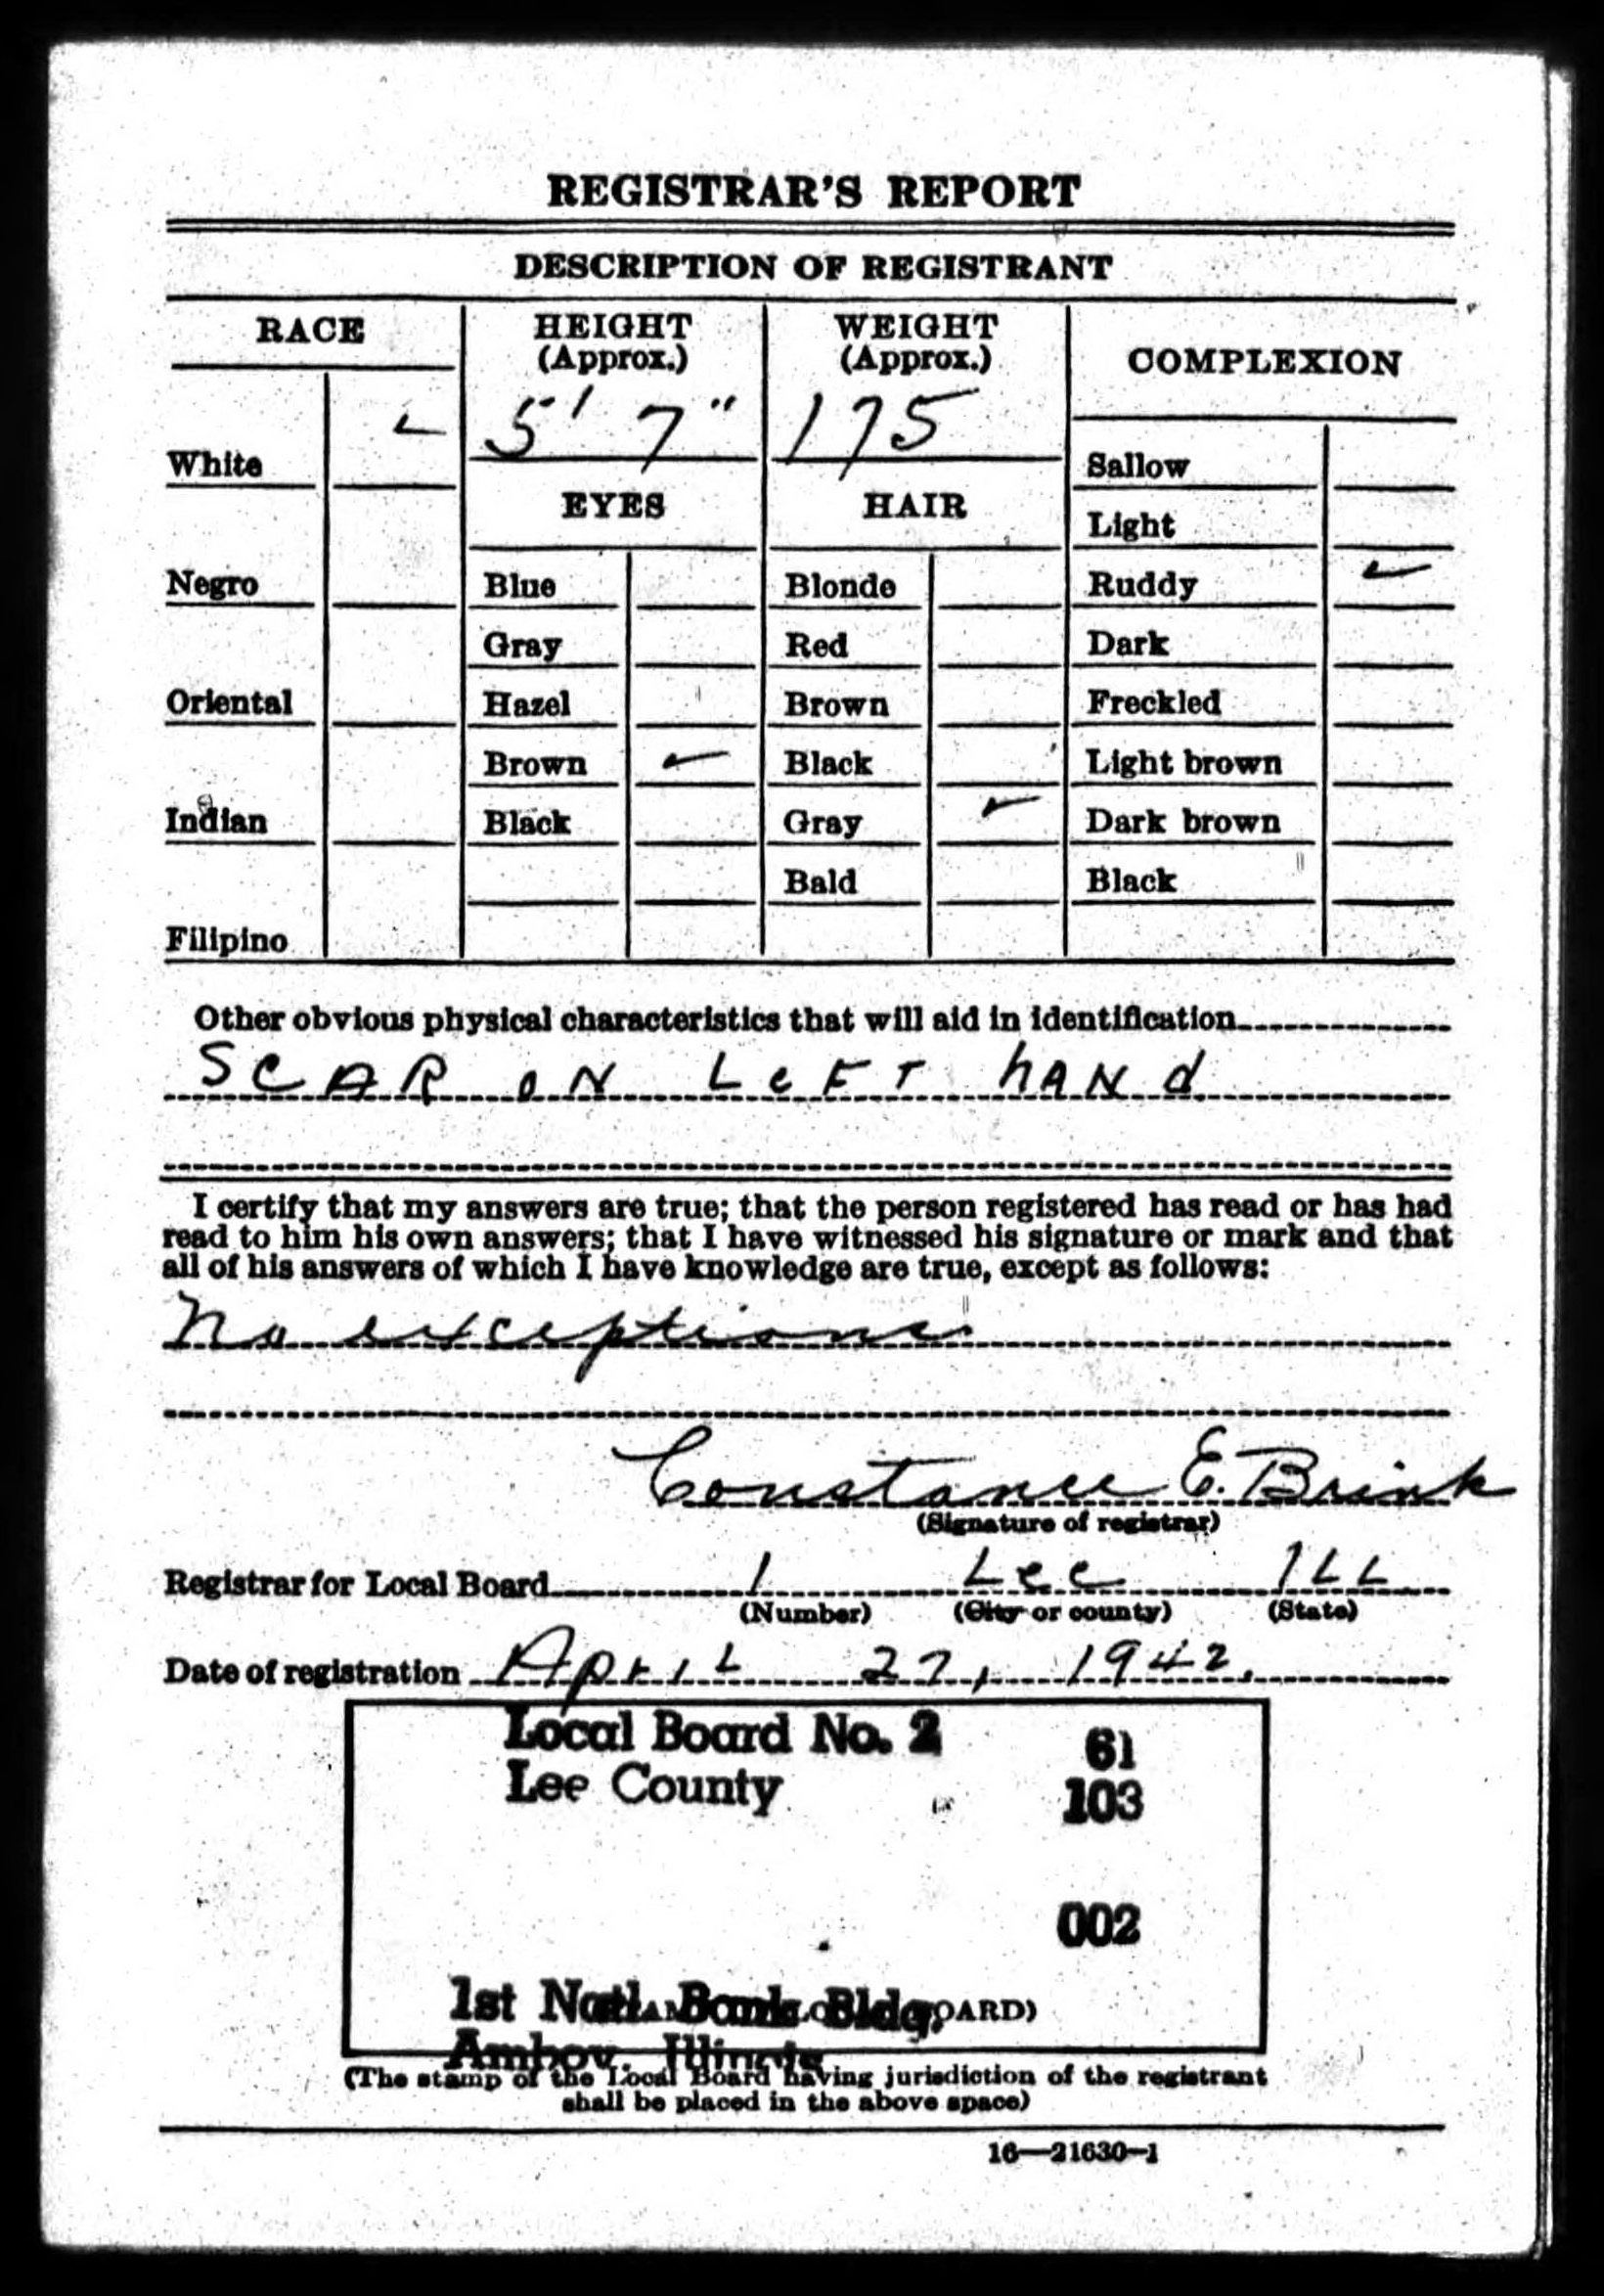 REGISTRAR'S REPORT
DESCRIPTION OF REGISTRANT
RACE
HEIGHT
(Approx.)
WEIGHT
(Approx.)
COMPLEXION
5' 7"
175
White
Sallow
EYES
HAIR
Light
Negro
Blue
Blonde
Ruddy
Gray
Red
Dark
Oriental
Hazel
Brown
Freckled
Brown
Black
Light brown
Indian
Black
Gray
Dark brown
Bald
Black
Filipino
Other obvious physical characteristics that will aid in identification
SCAR ON LeFT hANd
I certify that my answers are true; that the person registered has read or has had
read to him his own answers; that I have witnessed his signature or mark and that
all of his answers of which I have knowledge are true, except as follows:
No exceptions
Constance E. Brink
(Signature of registrar)
Registrar for Local Board 1 Lee ILL
(Number) (City or county) (State)
Date of registration April 27, 1942.
Local Board No. 2 61
Lee County 103
002
1st Natl. Bank Bldg. OARD)
Amboy, Illinois
(The stamp of the Local Board having jurisdiction of the registrant
shall be placed in the above space)
16—21630-1